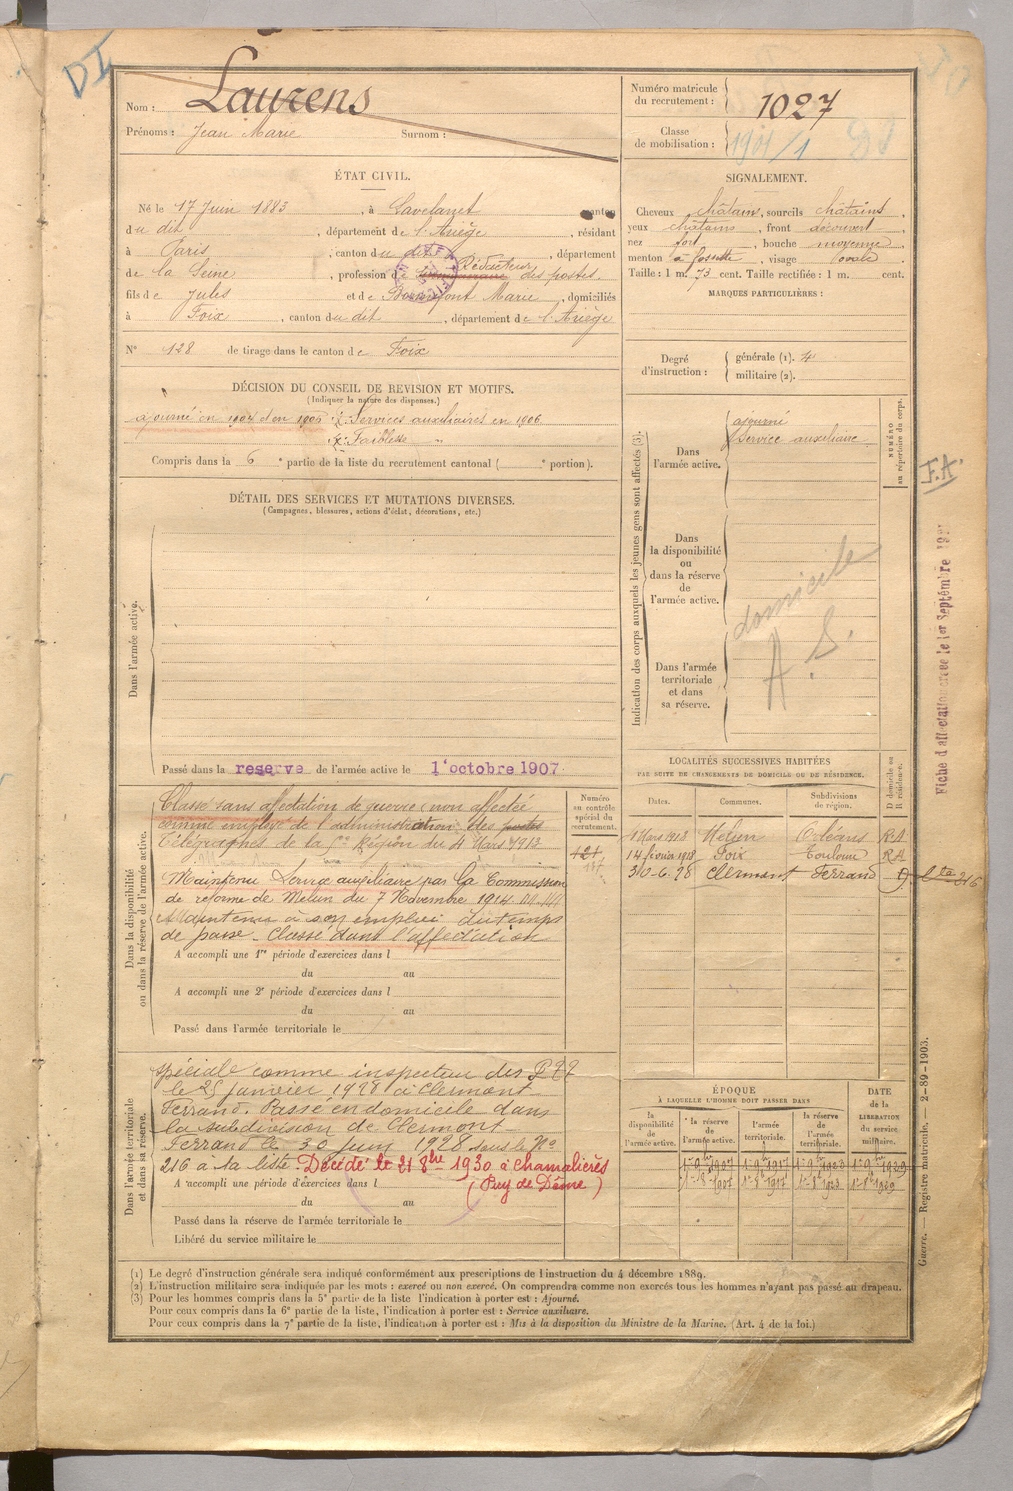 DI
Nom : Laurens
Prénoms : Jean Marie Surnom :
Numéro matricule du recrutement : 1027
Classe de mobilisation : 1901/1
ÉTAT CIVIL.
Né le 17 Juin 1883, à Lavelanet canton
du dit, département de l'Ariège, résidant
à Paris, canton du dit, département
de la Seine, profession de Rédacteur des postes.
fils de Jules et de Bonnefont Marie, domiciliés
à Foix, canton du dit, département de l'Ariège
N° 128 de tirage dans le canton de Foix
SIGNALEMENT.
Cheveux châtains, sourcils châtains,
yeux châtains, front découvert,
nez fort, bouche moyenne,
menton à fossette, visage ovale.
Taille : 1 m. 73 cent. Taille rectifiée : 1 m. cent.
MARQUES PARTICULIÈRES :
Degré d'instruction : générale (1). 4
militaire (2).
DÉCISION DU CONSEIL DE REVISION ET MOTIFS.
(Indiquer la nature des dispenses.)
ajourné en 1904 et en 1905 Services auxiliaires en 1906
Faiblesse "
Compris dans la 6e partie de la liste du recrutement cantonal ( e portion).
DÉTAIL DES SERVICES ET MUTATIONS DIVERSES.
(Campagnes, blessures, actions d'éclat, décorations, etc.)
Dans l'armée active.
Passé dans la reserve de l'armée active le 1er octobre 1907
Indication des corps auxquels les jeunes gens sont affectés (3).
Dans l'armée active.
ajourné
Service auxiliaire
NUMÉRO au répertoire du corps.
Dans la disponibilité ou dans la réserve de l'armée active.
domicile
A. S.
Dans l'armée territoriale et dans sa réserve.
F.A.
Fiche d'affectation créée le 1er Septembre
LOCALITÉS SUCCESSIVES HABITÉES
PAR SUITE DE CHANGEMENTS DE DOMICILE OU DE RÉSIDENCE.
Dates. Communes. Subdivisions de région. D domicile ou R résidence.
1 Mars 1913 Melun Orléans RA
14 février 1918 Foix Toulouse RA
30-6-28 Clermont Ferrand D lte 216
Dans la disponibilité ou dans la réserve de l'armée active.
Numéro au contrôle spécial du recrutement.
Classé sans affectation de guerre (non affecté
comme employé de l'administration des postes
Télégraphes de la 5e Région du 4 Mars 1913
Maintenu Service auxiliaire par la Commission
de réforme de Melun du 7 Novembre 1914.
Maintenu à son emploi du temps
de paix. Classé dans l'affectation
A accompli une 1re période d'exercices dans l
du au
A accompli une 2e période d'exercices dans l
du au
Passé dans l'armée territoriale le
Dans l'armée territoriale et dans sa réserve.
Spéciale comme inspecteur des PTT
le 25 janvier 1928 à Clermont
Ferrand. Passé en domicile dans
la subdivision de Clermont-
Ferrand le 30 Juin 1928 sous le No
216 à la liste. Décédé le 21 8bre 1930 à Chamalières
(Puy de Dôme)
A accompli une période d'exercices dans l
du au
Passé dans la réserve de l'armée territoriale le
Libéré du service militaire le
ÉPOQUE
À LAQUELLE L'HOMME DOIT PASSER DANS
la disponibilité de l'armée active. la réserve de l'armée active. l'armée territoriale. la réserve de l'armée territoriale.
DATE de la LIBÉRATION du service militaire.
(1) Le degré d'instruction générale sera indiqué conformément aux prescriptions de l'instruction du 4 décembre 1889.
(2) L'instruction militaire sera indiquée par les mots : exercé ou non exercé. On comprendra comme non exercés tous les hommes n'ayant pas passé au drapeau.
(3) Pour les hommes compris dans la 5e partie de la liste l'indication à porter est : Ajourné.
Pour ceux compris dans la 6e partie de la liste, l'indication à porter est : Service auxiliaire.
Pour ceux compris dans la 7e partie de la liste, l'indication à porter est : Mis à la disposition du Ministre de la Marine. (Art. 4 de la loi.)
Guerre. — Registre matricule. — 2-89-1903.